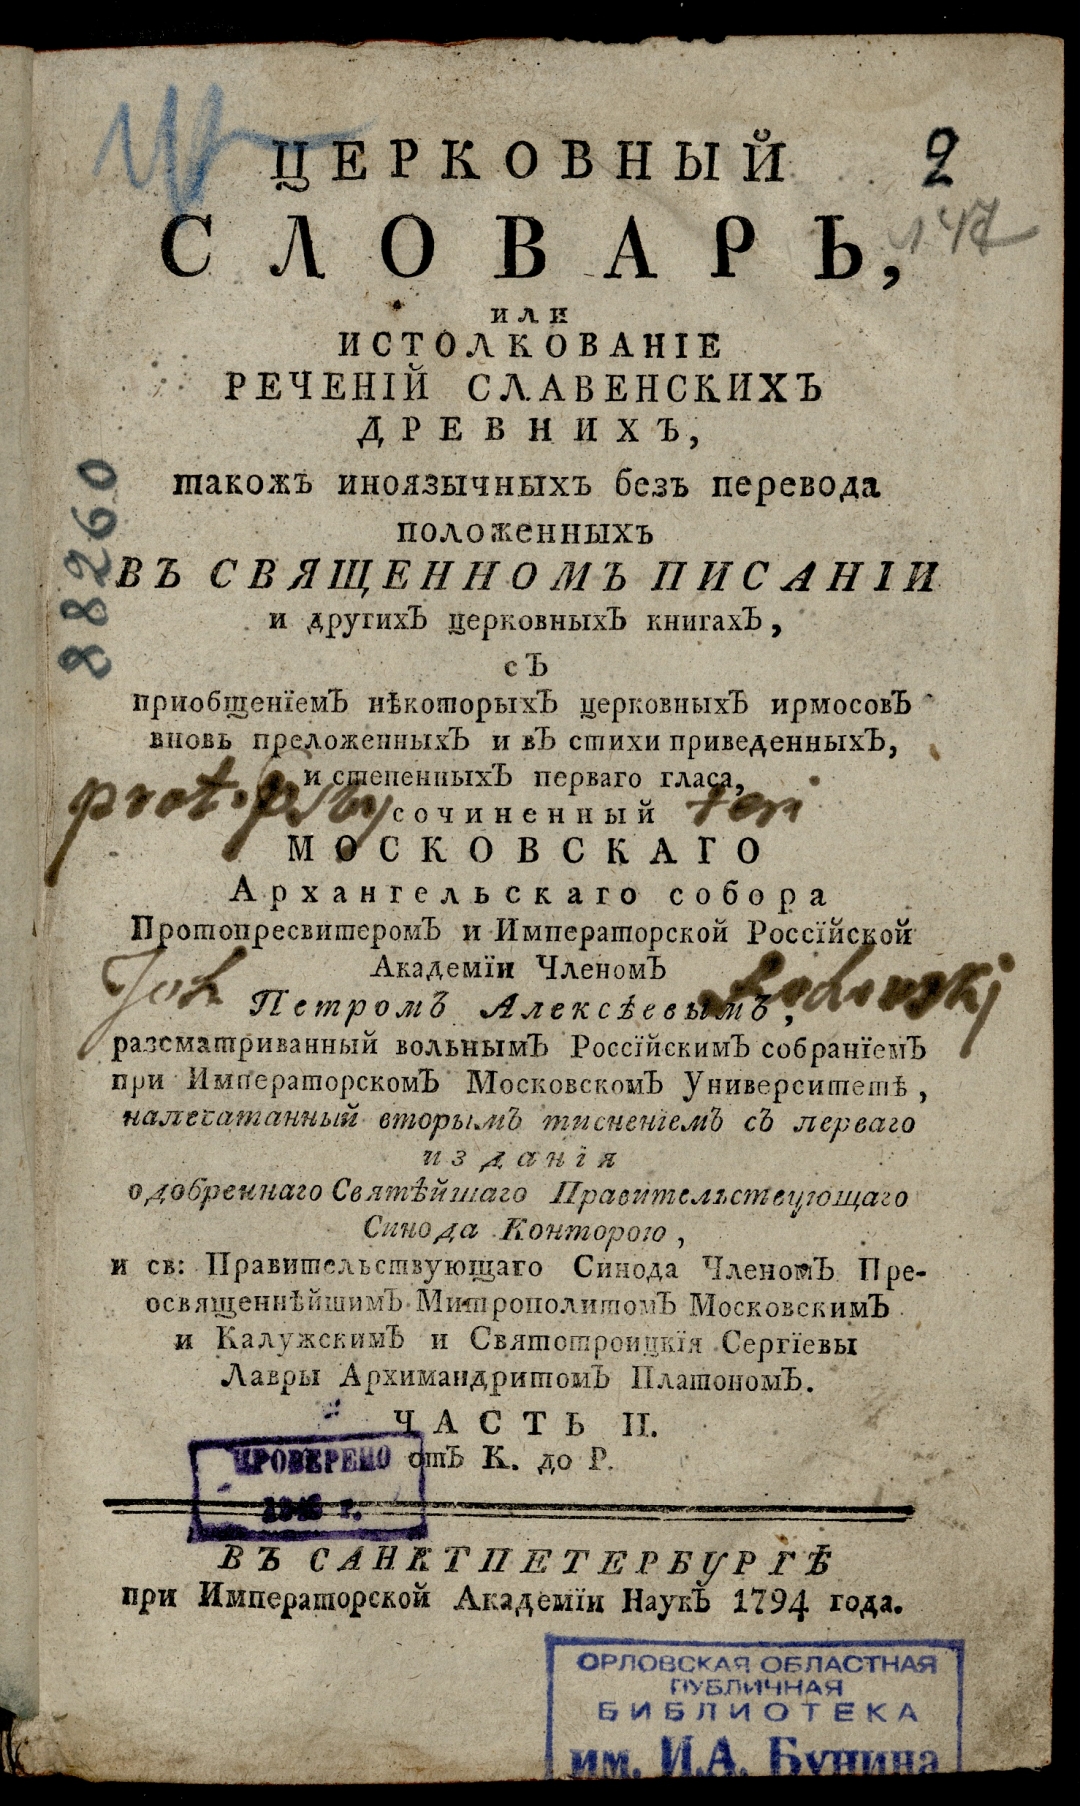 ЦЕРКОВНЫЙ
2
147
СЛОВАРЬ,
или
ИСТОЛКОВАНІЕ
РЕЧЕНІЙ СЛАВЕНСКИХЪ
ДРЕВНИХЪ,
такожъ иноязычныхъ безъ перевода
положенныхъ
88260
ВЪ СВЯЩЕННОМЪ ПИСАНІИ
и другихЪ церковныхЪ книгахЪ,
сЪ
приобщенїемЪ нѣкоторыхЪ церковныхЪ ирмосовЪ
вновь преложенныхЪ и вЪ стихи приведенныхЪ,
и степенныхЪ перваго гласа,
сочиненный
МОСКОВСКАГО
Архангельскаго собора
ПротопресвитеромЪ и Императорской Россїйской
Академїи ЧленомЪ
Joh
ПетромЪ АлексѣевымЪ,
разсматриванный вольнымЪ РоссїйскимЪ собранїемЪ
при ИмператорскомЪ МосковскомЪ Университетѣ,
напечатанный вторымЪ тисненїемЪ сЪ перваго
изданїя
одобреннаго Святѣйшаго Правительствующаго
Синода Конторою,
и св: Правительствующаго Синода ЧленомЪ Пре-
освященнѣйшимЪ МитрополитомЪ МосковскимЪ
и КалужскимЪ и Святотроицкїя Сергїевы
Лавры АрхимандритомЪ ПлатономЪ.
ЧАСТЬ II.
отЪ К. до Р.
ПРОВЕРЕНО
г.
ВЪ САНКТПЕТЕРБУРГѢ
при Императорской Академїи НаукЪ 1794 года.
ОРЛОВСКАЯ ОБЛАСТНАЯ
ПУБЛИЧНАЯ
БИБЛИОТЕКА
им. И.А. Бунина